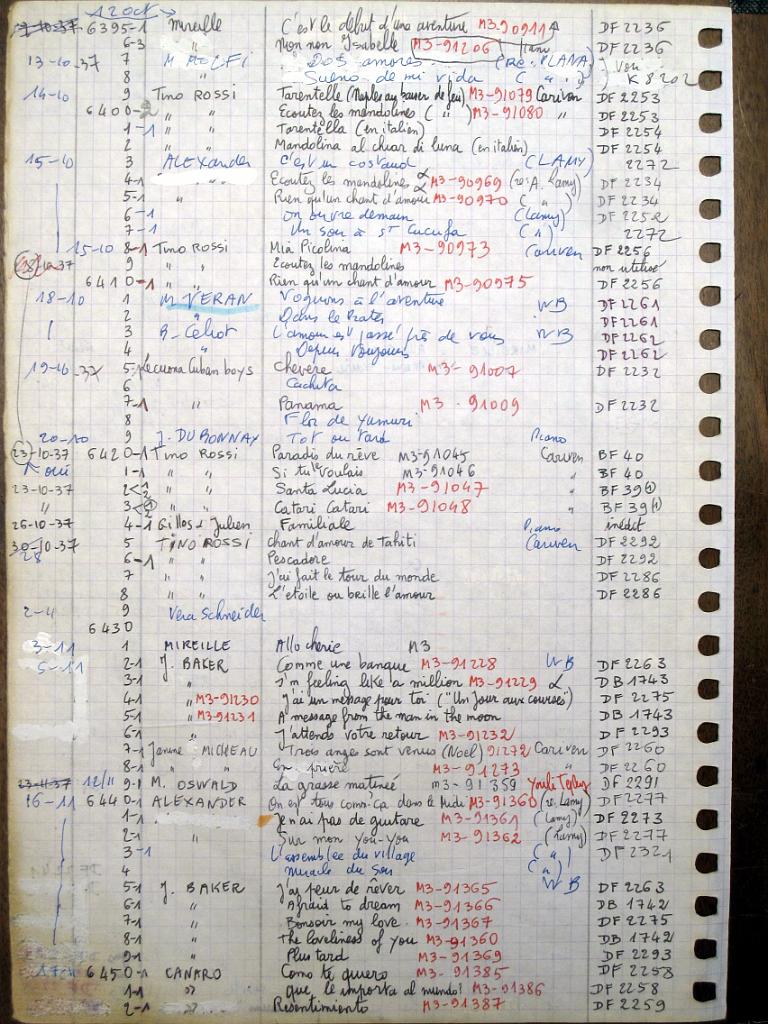 12 Oct
6395-1 Mireille C'est le début d'une aventure M3-90911 DF 2236
6-3 " Non non Isabelle M3-91206 DF 2236
13-10-37 7 Dos amores (Re: PLANA) Voir
8 Sueno de mi vida ( " " ) K 8202
14-10 9 Tino ROSSI Tarentelle (Naples au baiser de feu) M3-91079 Cariven DF 2253
6400-2 " " Ecoutez les mandolines ( " ) M3-91080 " DF 2253
1-1 " " Tarentella (en italien) DF 2254
2 " " Mandolina al chiar di luna (en italien) DF 2254
15-10 3 ALEXander C'est un costaud (LAMY) 2272
4-1 Ecoutez les mandolines M3-90969 (re: A. Lamy) DF 2234
5-1 " Rien qu'un chant d'amour M3-90970 ( " ) DF 2234
6-1 On ouvre demain (Lamy) DF 2252
7-1 Un soir à St Cucufa ( " ) 2272
15-10 8-1 Tino ROSSI Mia Picolina M3-90973 Cariven DF 2256
9 " " Ecoutez les mandolines non utilisé
6410-1 " " Rien qu'un chant d'amour M3-90975 DF 2256
18-10 1 M. VERAN Voguons à l'aventure WB DF 2261
2 " Dans le DF 2261
3 L'amour est passé près de vous WB DF 2262
4 " Depuis toujours DF 2262
19-10-37 5 Lecuona Cuban boys Chevere M3-91007 DF 2232
6 Cachita
7-1 " Panama M3-91009 DF 2232
8 Flor de Yumuri
20-10 9 J. DUBONNAY Tot ou tard Piano
23-10-37 6420-1 Tino Rossi Paradis du rêve M3-91045 Cariven BF 40
oui 1-1 " " Si tu le voulais M3-91046 " BF 40
23-10-37 2 " " Santa Lucia M3-91047 " BF 39 (1)
" 3 " " Catari Catari M3-91048 " BF 39 (1)
26-10-37 4-1 Gilles & Julien Familiale Piano inédit
30-10-37 5 TINO ROSSI chant d'amour de Tahiti Cariven DF 2292
28 6-1 " " Pescadore DF 2292
7 " " J'ai fait le tour du monde DF 2286
8 " " L'étoile ou brille l'amour DF 2286
2-4 9 Vera Schneider
6430
3-11 1 MIREILLE Allo cherie M3
5-11 2-1 J. BAKER Comme une banque M3-91228 WB DF 2263
3-1 " I'm feeling like a million M3-91229 DB 1743
4-1 " M3-91230 J'ai un message pour toi ("Un Jour aux courses") DF 2275
5-1 " M3-91231 A message from the man in the moon DB 1743
6-1 " J'attends votre retour M3-91232 DF 2293
7-1 Janine MICHEAU Trois anges sont venus (Noel) 91272 Cariven DF 2260
8-1 " " En prière M3-91273 " DF 2260
12/11 9-1 M. OSWALD La grasse matineé M3-91359 DF 2291
16-11 6440-1 ALEXANDER On est tous comm-ça dans le Midi M3-91360 (re: Lamy) DF 2277
1-1 Je n'ai pas de guitare M3-91361 (Lamy) DF 2273
2-1 " Sur mon you-you M3-91362 (Lamy) DF 2277
3-1 L'assemblée du village ( " ) DF 2321
4 Miracle du Son ( " )
5-1 J. BAKER J'ai peur de rêver M3-91365 WB DF 2263
6-1 " Afraid to dream M3-91366 DB 1742
7-1 " Bonsoir my love M3-91367 DF 2275
8-1 " The loveliness of you M3-91360 DB 1742
9-1 " Plus tard M3-91369 DF 2293
17-11 6450-1 CANARO Como te quiero M3-91385 DF 2258
1-1 " que le importa al mundo! M3-91386 DF 2258
2-1 " Resentimiento M3-91387 DF 2259